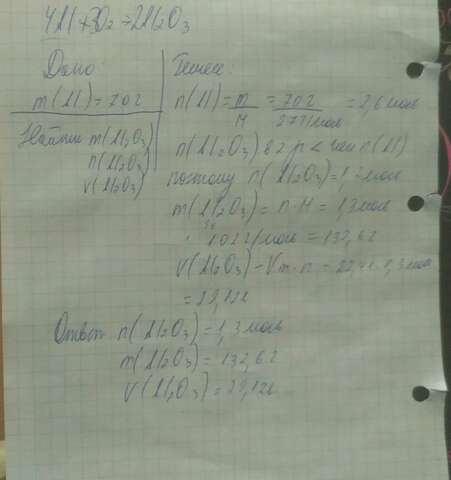 4Al+3O₂=2Al₂O₃
Дано:
m(Al)=70г
Найти m(Al₂O₃)
n(Al₂O₃)
V(Al₂O₃)
Решен.
n(Al)=m/M=70г/27г/моль=2,6моль
n(Al₂O₃) в 2 p < чем n(Al)
поэтому n(Al₂O₃)=1,3моль
m(Al₂O₃)=n·M=1,3моль
·102г/моль=132,6г
V(Al₂O₃)-Vm·n=22,4л·1,3моль
=29,12л
Ответ n(Al₂O₃)=1,3моль
m(Al₂O₃)=132,6г
V(Al₂O₃)=29,12л